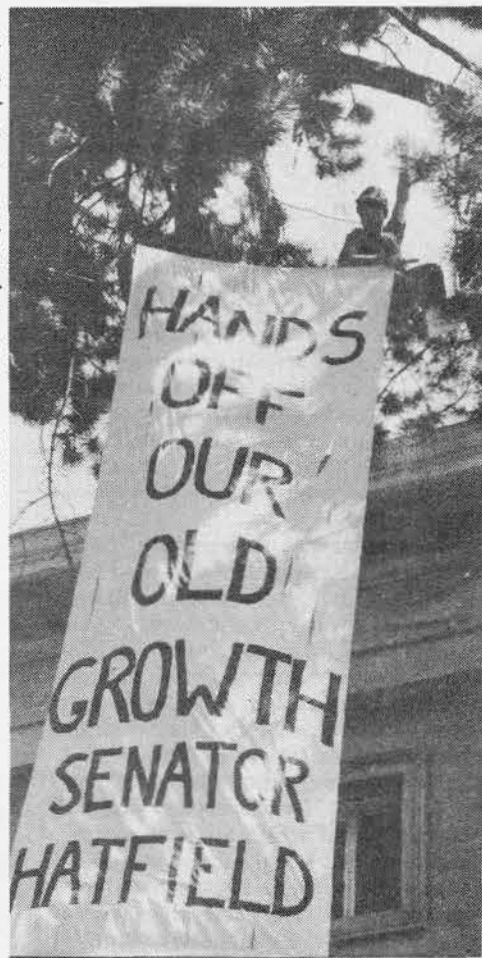 HANDS
OFF
OUR
OLD
GROWTH
SENATOR
HATFIELD